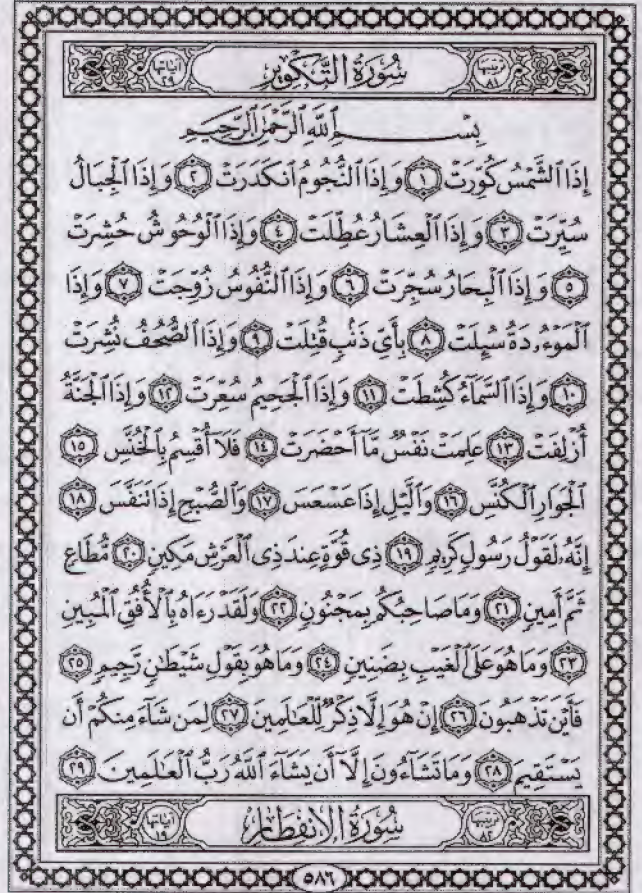 ترتيبها ٨١ سُورَةُ التَّكْوِيرِ آياتها ٢٩
بِسْمِ ٱللَّهِ ٱلرَّحْمَٰنِ ٱلرَّحِيمِ
إِذَا ٱلشَّمْسُ كُوِّرَتْ ١ وَإِذَا ٱلنُّجُومُ ٱنكَدَرَتْ ٢ وَإِذَا ٱلْجِبَالُ
سُيِّرَتْ ٣ وَإِذَا ٱلْعِشَارُ عُطِّلَتْ ٤ وَإِذَا ٱلْوُحُوشُ حُشِرَتْ
٥ وَإِذَا ٱلْبِحَارُ سُجِّرَتْ ٦ وَإِذَا ٱلنُّفُوسُ زُوِّجَتْ ٧ وَإِذَا
ٱلْمَوْءُۥدَةُ سُئِلَتْ ٨ بِأَىِّ ذَنۢبٍ قُتِلَتْ ٩ وَإِذَا ٱلصُّحُفُ نُشِرَتْ
١٠ وَإِذَا ٱلسَّمَآءُ كُشِطَتْ ١١ وَإِذَا ٱلْجَحِيمُ سُعِّرَتْ ١٢ وَإِذَا ٱلْجَنَّةُ
أُزْلِفَتْ ١٣ عَلِمَتْ نَفْسٌ مَّآ أَحْضَرَتْ ١٤ فَلَآ أُقْسِمُ بِٱلْخُنَّسِ ١٥
ٱلْجَوَارِ ٱلْكُنَّسِ ١٦ وَٱلَّيْلِ إِذَا عَسْعَسَ ١٧ وَٱلصُّبْحِ إِذَا تَنَفَّسَ ١٨
إِنَّهُۥ لَقَوْلُ رَسُولٍ كَرِيمٍ ١٩ ذِى قُوَّةٍ عِندَ ذِى ٱلْعَرْشِ مَكِينٍ ٢٠ مُّطَاعٍ
ثَمَّ أَمِينٍ ٢١ وَمَا صَاحِبُكُم بِمَجْنُونٍ ٢٢ وَلَقَدْ رَءَاهُ بِٱلْأُفُقِ ٱلْمُبِينِ
٢٣ وَمَا هُوَ عَلَى ٱلْغَيْبِ بِضَنِينٍ ٢٤ وَمَا هُوَ بِقَوْلِ شَيْطَٰنٍ رَّجِيمٍ ٢٥
فَأَيْنَ تَذْهَبُونَ ٢٦ إِنْ هُوَ إِلَّا ذِكْرٌ لِّلْعَٰلَمِينَ ٢٧ لِمَن شَآءَ مِنكُمْ أَن
يَسْتَقِيمَ ٢٨ وَمَا تَشَآءُونَ إِلَّآ أَن يَشَآءَ ٱللَّهُ رَبُّ ٱلْعَٰلَمِينَ ٢٩
ترتيبها ٨٢ سُورَةُ الانفِطَار آياتها ١٩
٥٨٦